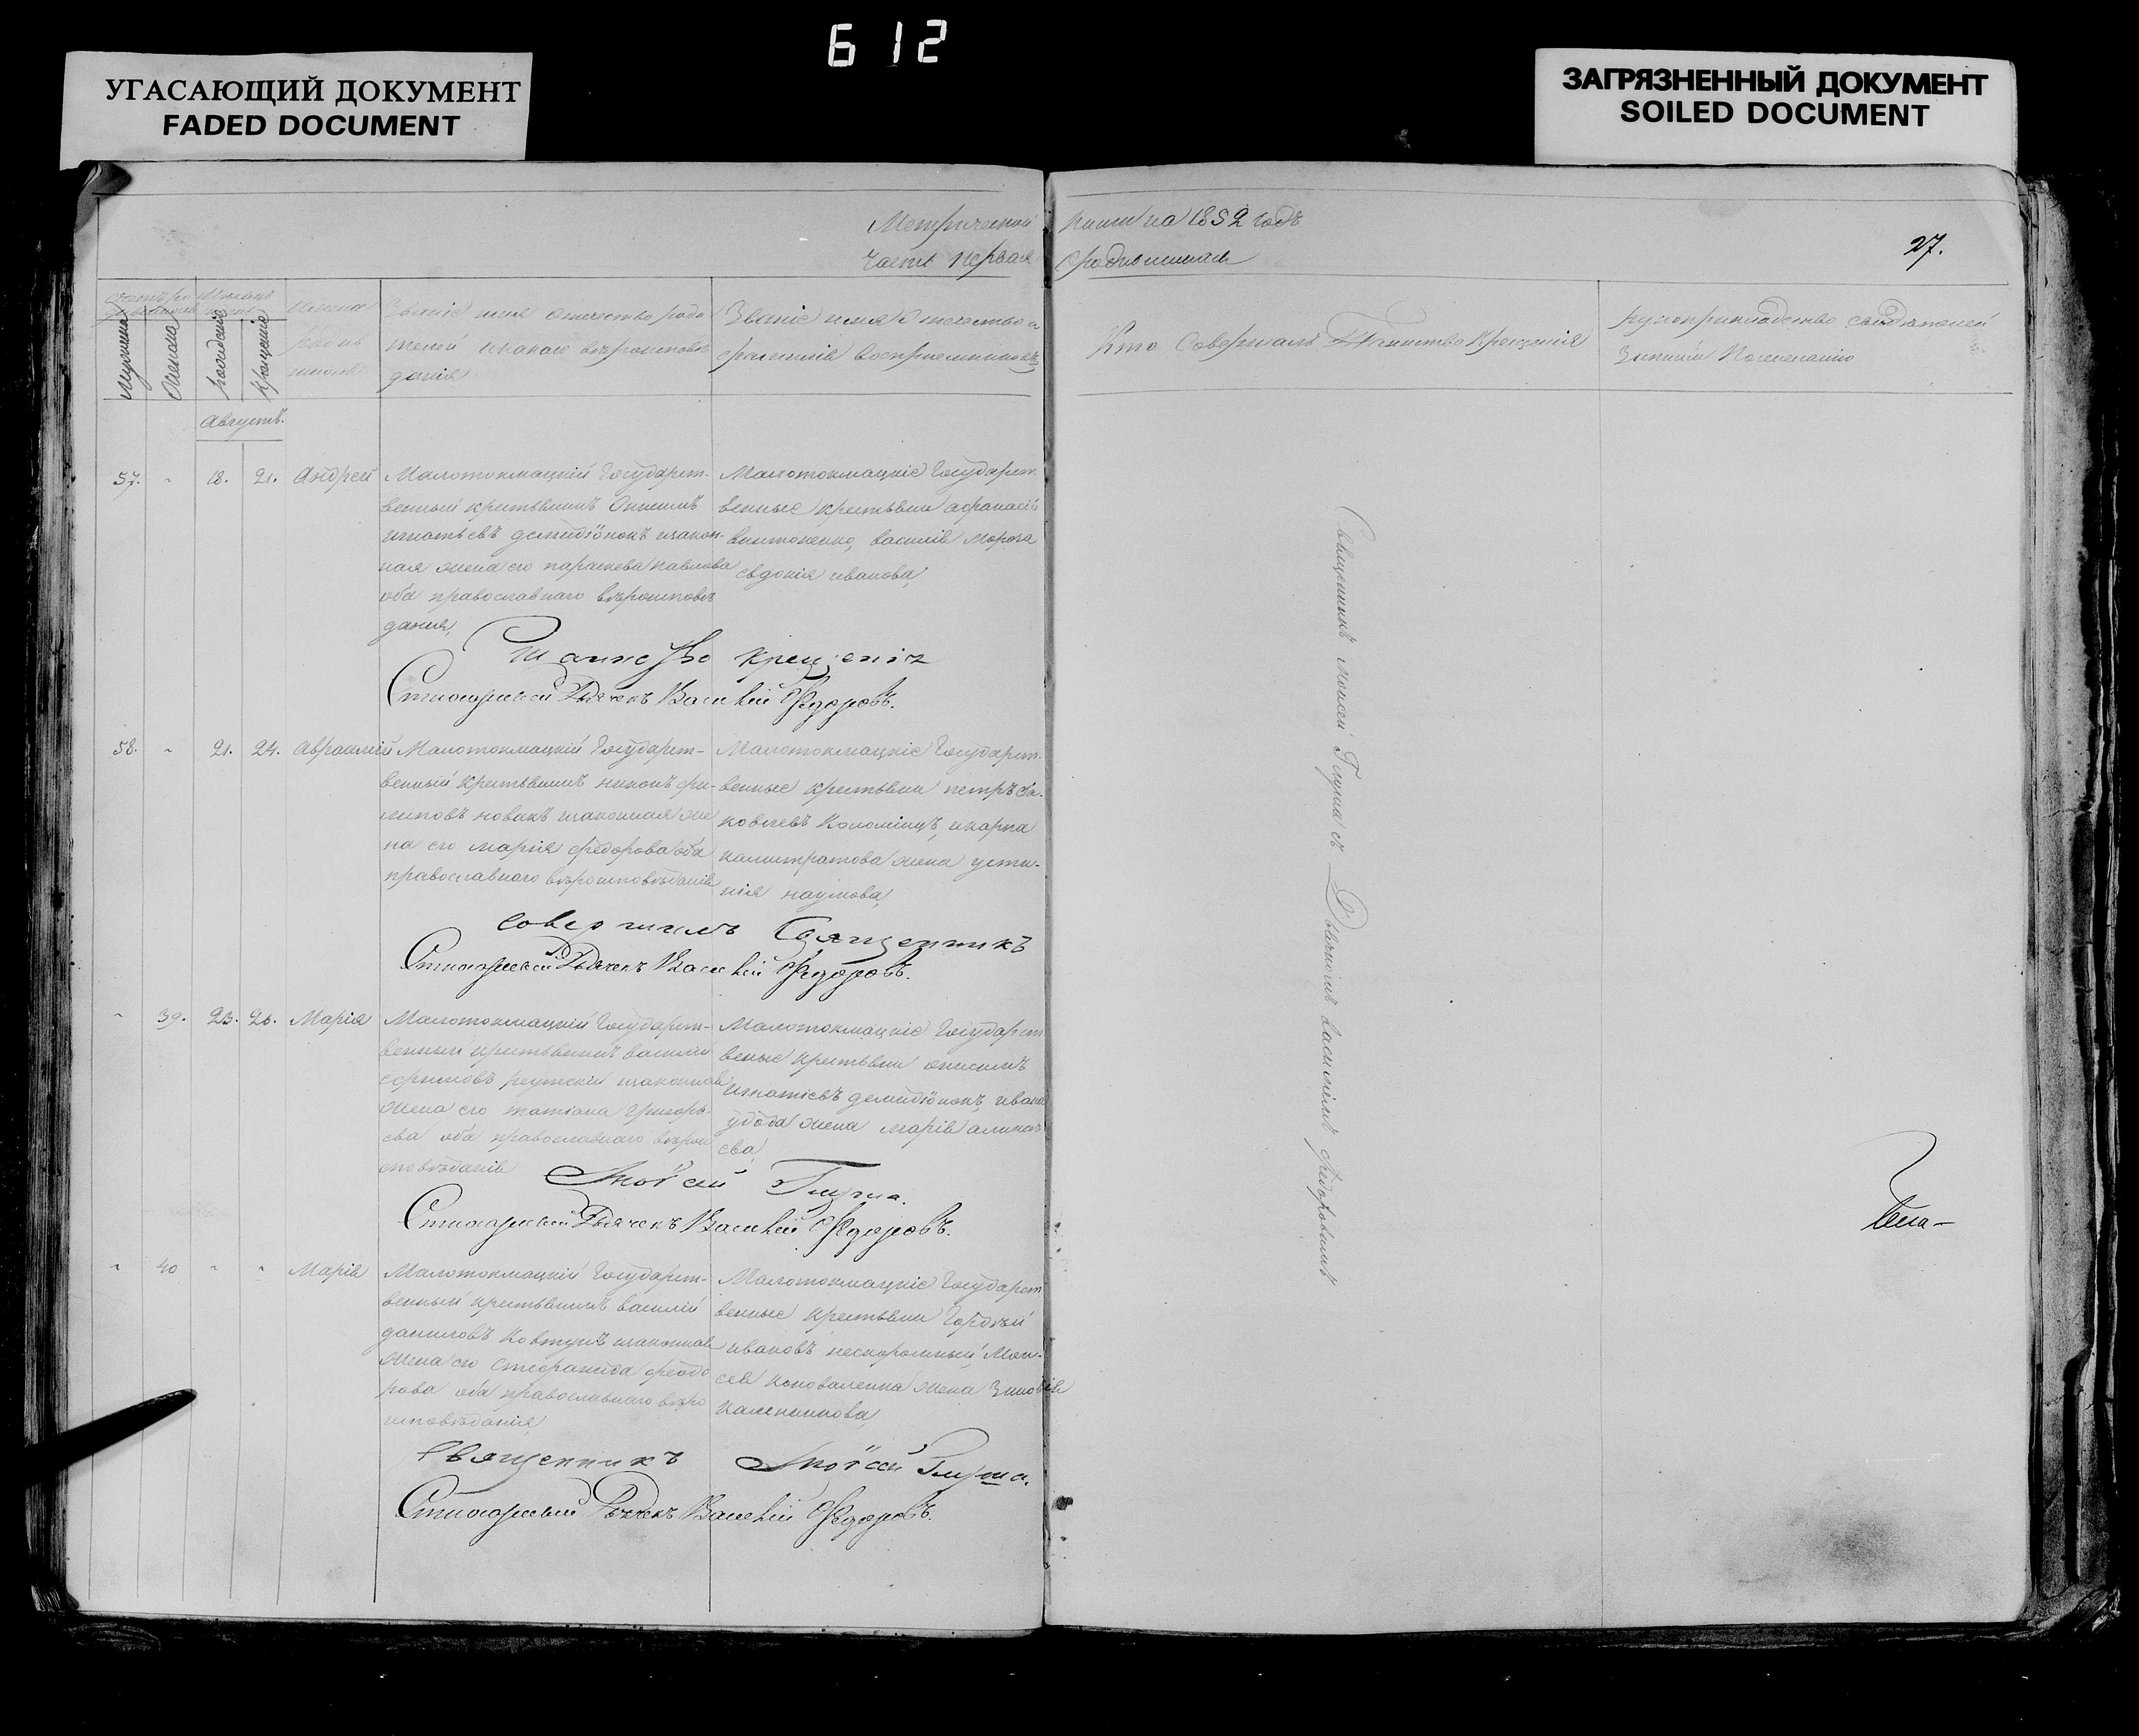 612
УГАСАЮЩИЙ ДОКУМЕНТ
FADED DOCUMENT
ЗАГРЯЗНЕННЫЙ ДОКУМЕНТ
SOILED DOCUMENT
Метрической книги на 1852 годъ
Часть первая о родившихся
27.
Мужеска
Женска
рожденія
Крещенія
Имена родив
шихся
Званіе имя отчество роди
телей и какого вѣроисповѣ
данія
Званіе имя отечество и
фамилія воспріемниковъ
Кто Совершалъ Таинство Крещенія
рукоприкладство свидѣтелей
записи По желанію
Августъ.
57. 18. 21. Андрей
Малотокмацкій Государст-
венный крестьянинъ Онисимъ
игнатьевъ демидіонокъ изакон-
ная жена его параскева павлова
оба православнаго вѣроисповѣ
данія,
Малотокмацкіе Государст
венные крестьяни афанасій
винтоненко, василія мороза
евдокія иванова,
Таинство крещенія
Стихарный Дьячекъ Василій Федоровъ.
58. 21. 24. Авраамій
Малотокмацкій Государст-
венный крестьянинъ никонъ фи-
липовъ новакъ изаконная же
на его марія федорова оба
православнаго вѣроисповѣданія
Малотокмацкіе Государст-
венные крестьяни петръ Я-
ковлевъ Коломіецъ, икарпа
калистратова жена усти-
нія наумова,
совершилъ Священникъ
Стихарный Дьячекъ Василій Федоровъ.
39. 23. 26. Марія
Малотокмацкій Государст-
венный крестьянинъ василій
ефимовъ реутскій изаконная
жена его татіана григорь-
ева оба православнаго вѣрои
сповѣданія
Малотокмацкіе Государст
веные крестьяни онисимъ
игнатіевъ демидіонокъ, ивана
удода жена марія
ева,
Моѵсей Глуша.
Стихарный Дьячекъ Василій Федоровъ.
40 Марія
Малотокмацкій Государст-
венный крестьянинъ василій
даниловъ Ковтунъ изаконная
жена его стефанида феодо
рова оба православнаго вѣро
исповѣданія,
Малотокмацкіе Государст
венные крестьяни Гордѣй
ивановъ нескоромный, Мои-
сея коноваленка жена Зиновія
каленикова,
Священникъ Моѵсей Глуша.
Стихарный Дьячекъ Василій Федоровъ.
Священникъ Моисей Глуша съ Дьячкомъ Василіемъ Федоровымъ